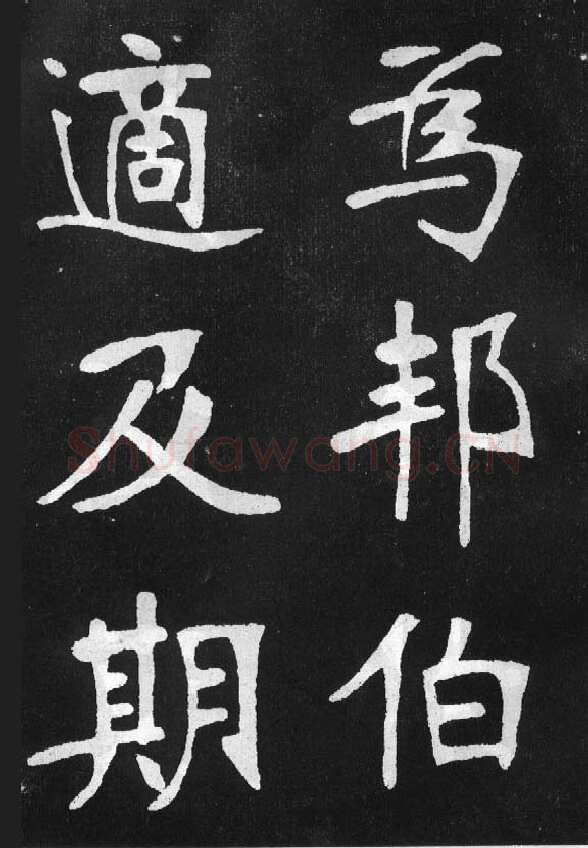 為邦伯
適及期
Shufawang.CN